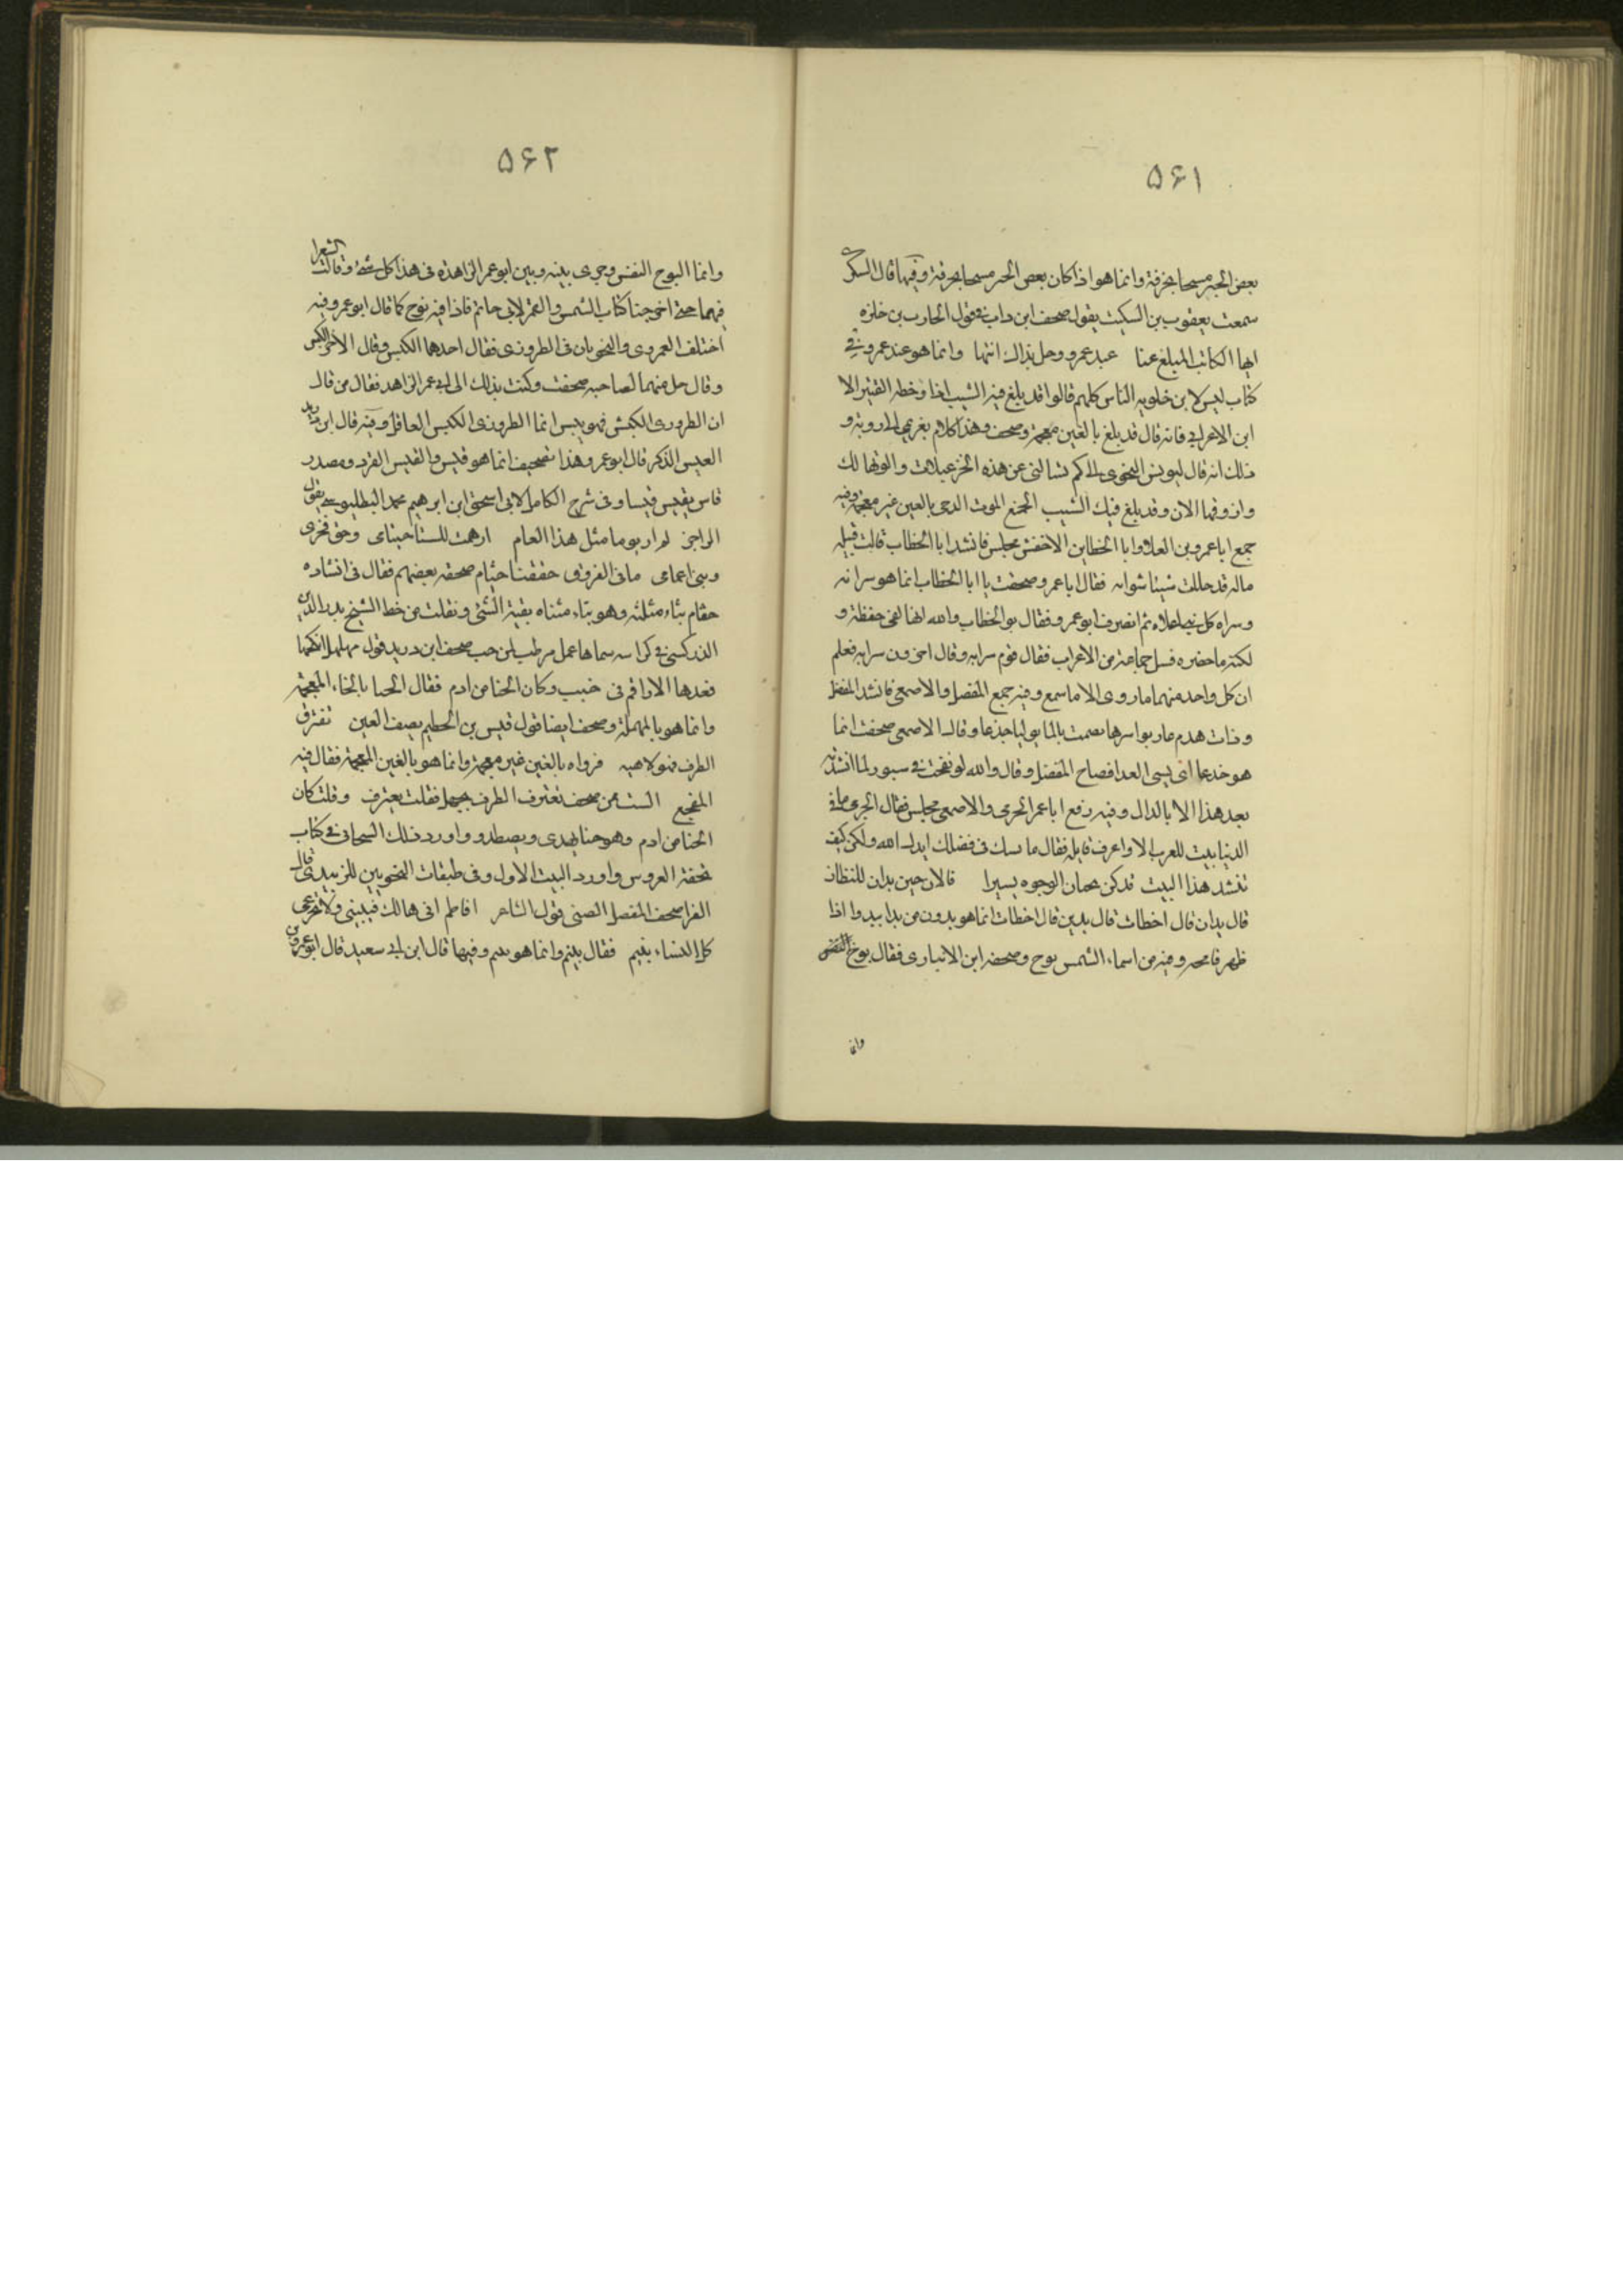 ۵۶۱
بعض الجبر مسيحا بخرقة وانما هو اذا كان بعض الحر مسحا بحرقة وفيها قال السكرى
سمعت يعقوب بن السكيت يقول صحف ابن داب فى قول الحارث بن حلزه
ايها الكاتب المبلغ عنا عبد عمرو وهل بذاك انتها وانما هو عند عمرو وفى
كتاب ليس لابن خلويه الناس كلهم قالوا قد بلغ فيه الشيب اذا وخطه القتير الا
ابن الاعرابى فانه قال قد بلغ بالغين معجمة وصحف وهذا كلام يعزى الى روبة و
ذلك انه قال ليونس النحوى الى كم تسالنى عن هذه الخزعبيلات والوقها لك
وازوقها الان وقد بلغ فيك الشيب بالعين غير معجمة وفيه
جمع ابا عمرو بن العلا وابا الخطاب الاخفش مجلس فانشد ابا الخطاب قالت قتيله
ماله قد جللت شيبا شواته فقال ابا عمرو صحفت يا ابا الخطاب انما هو سراته
وسراة كل شئ اعلاه ثم انصرف ابو عمرو فقال بو الخطاب والله انها لفى حفظه و
لكنه ما حضره فسل جماعة من الاعراب فقال قوم سراته وقال اخرون سراته فعلم
ان كل واحد منهما ما روى الا ما سمع وفيه جمع المفضل والاصمعى فانشد المفضل
وذات هدم عار نواشرها تصمت بالما تولبا جذعا وقال الاصمعى صحفت انما
هو جدعا اى سيى الغدا فصاح المفضل وقال والله لو نفخت فى سبور لما انشدته
بعد هذا الا بالدال وفيه رفع ابا عمر الجرمى والاصمعى مجلس فقال الجرمى ما فى
الدنيا بيت للعرب الا واعرف قايله فقال ما نسك فى فضلك ايدك الله ولكن كيف
تنشد هذا البيت قد كن يخبان الوجوه تسترا فالان حين بدان للنظار
قال بدان قال اخطات قال بدين قال اخطات انما هو بدون من بدا يبدوا اذا
ظهر فافحمه وفيه من اسماء الشمس يوح وصحفه ابن الانبارى فقال بوح النفس
وانما
۵۶۲
وانما البوح النفس وجرى بينه وبين ابو عمر الزاهد فى هذا كل شئ وقالت الشعرا
فيهما حتى اخرجنا كتاب الشمس والقمر لابى حاتم فاذا فيه يوح كما قال ابو عمر وفيه
اختلف العمروى والنحويان فى الطرورى فقال احدهما الكيس وقال الاخر الكبش
وقال كل منهما لصاحبه صحفت وكتب بذلك الى ابى عمر الزاهد فقال من قال
ان الطرورى الكبش فهو تيس انما الطرورى الكيس العاقل وفيه قال ابن دريد
الفيس الذكر قال ابو عمر وهذا تصحيف انما هو فيس والقيس القرد ومصدر
قاس يقيس قيسا وفى شرح الكامل لابى اسحق ابن ابرهيم محمد البطليوسى يقول
الراجز لم ار يوما مثل هذا العام ارهنت للستاحيتامى وحق فخرى
وبنى اعمامى مافى الفروق حفقنا حتام صحفه بعضهم فقال فى انشاده
حثام بثاء مثلثه وهو بتاء مثناه بقية الشئ ونقلت من خط الشيخ بدر الدين
الزركشى فى كراسه سماها عمل من طب لمن حب صحف ابن دريد قول مهلهل انكحها
فقدها الاراقم فى جنب وكان الحنا من ادم فقال الحبا بالخاء المعجمة
وانما هو بالمهملة وصحف ايضا قول قيس بن الخطيم يصف العين تغترق
الطرف وهو لاهيه فرواه بالعين غير معجمة وانما هو بالغين المعجمة فقال فيه
المفجع الست ممن صحف تغترف الطرف بجهل فقلت تعترف وقلت كان
الحنا من ادم وهو حنا يهدى ويصطدو واورد ذلك التيجانى فى كتاب
تحفة العروس واورد البيت الاول وفى طبقات النحويين للزبيدى قال
الفرا صحف المفضل الضبى قول الشاعر افاطم انى هالك فتبينى ولا تجزعى
كل النساء يتيم فقال يتيم وانما هو يئيم وفيها قال ابن ابى سعيد قال ابو عمرو بن